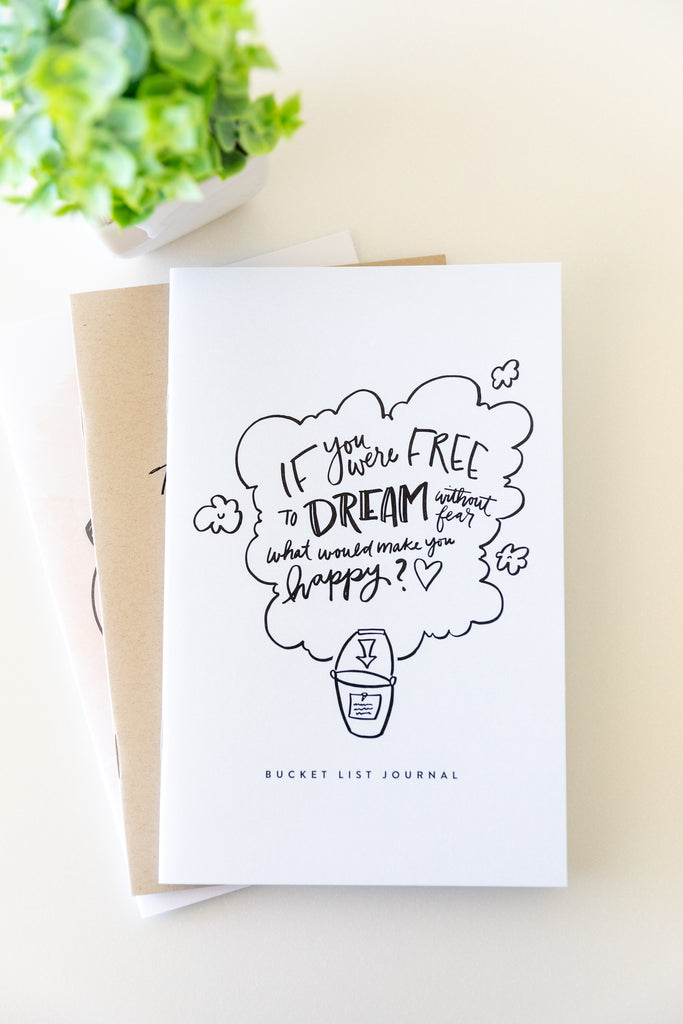 IF you were FREE
TO DREAM without fear
what would make you
happy?
BUCKET LIST JOURNAL